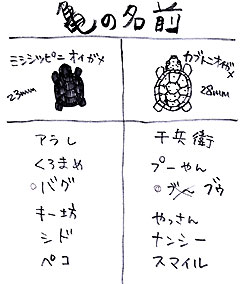 亀の名前
ミシシッピニオイガメ
23mm
カブトニオイガメ
28mm
アラレ
くろまめ
○バグ
キー坊
シド
ペコ
千兵衛
プーやん
○ブウ
やっさん
ナンシー
スマイル